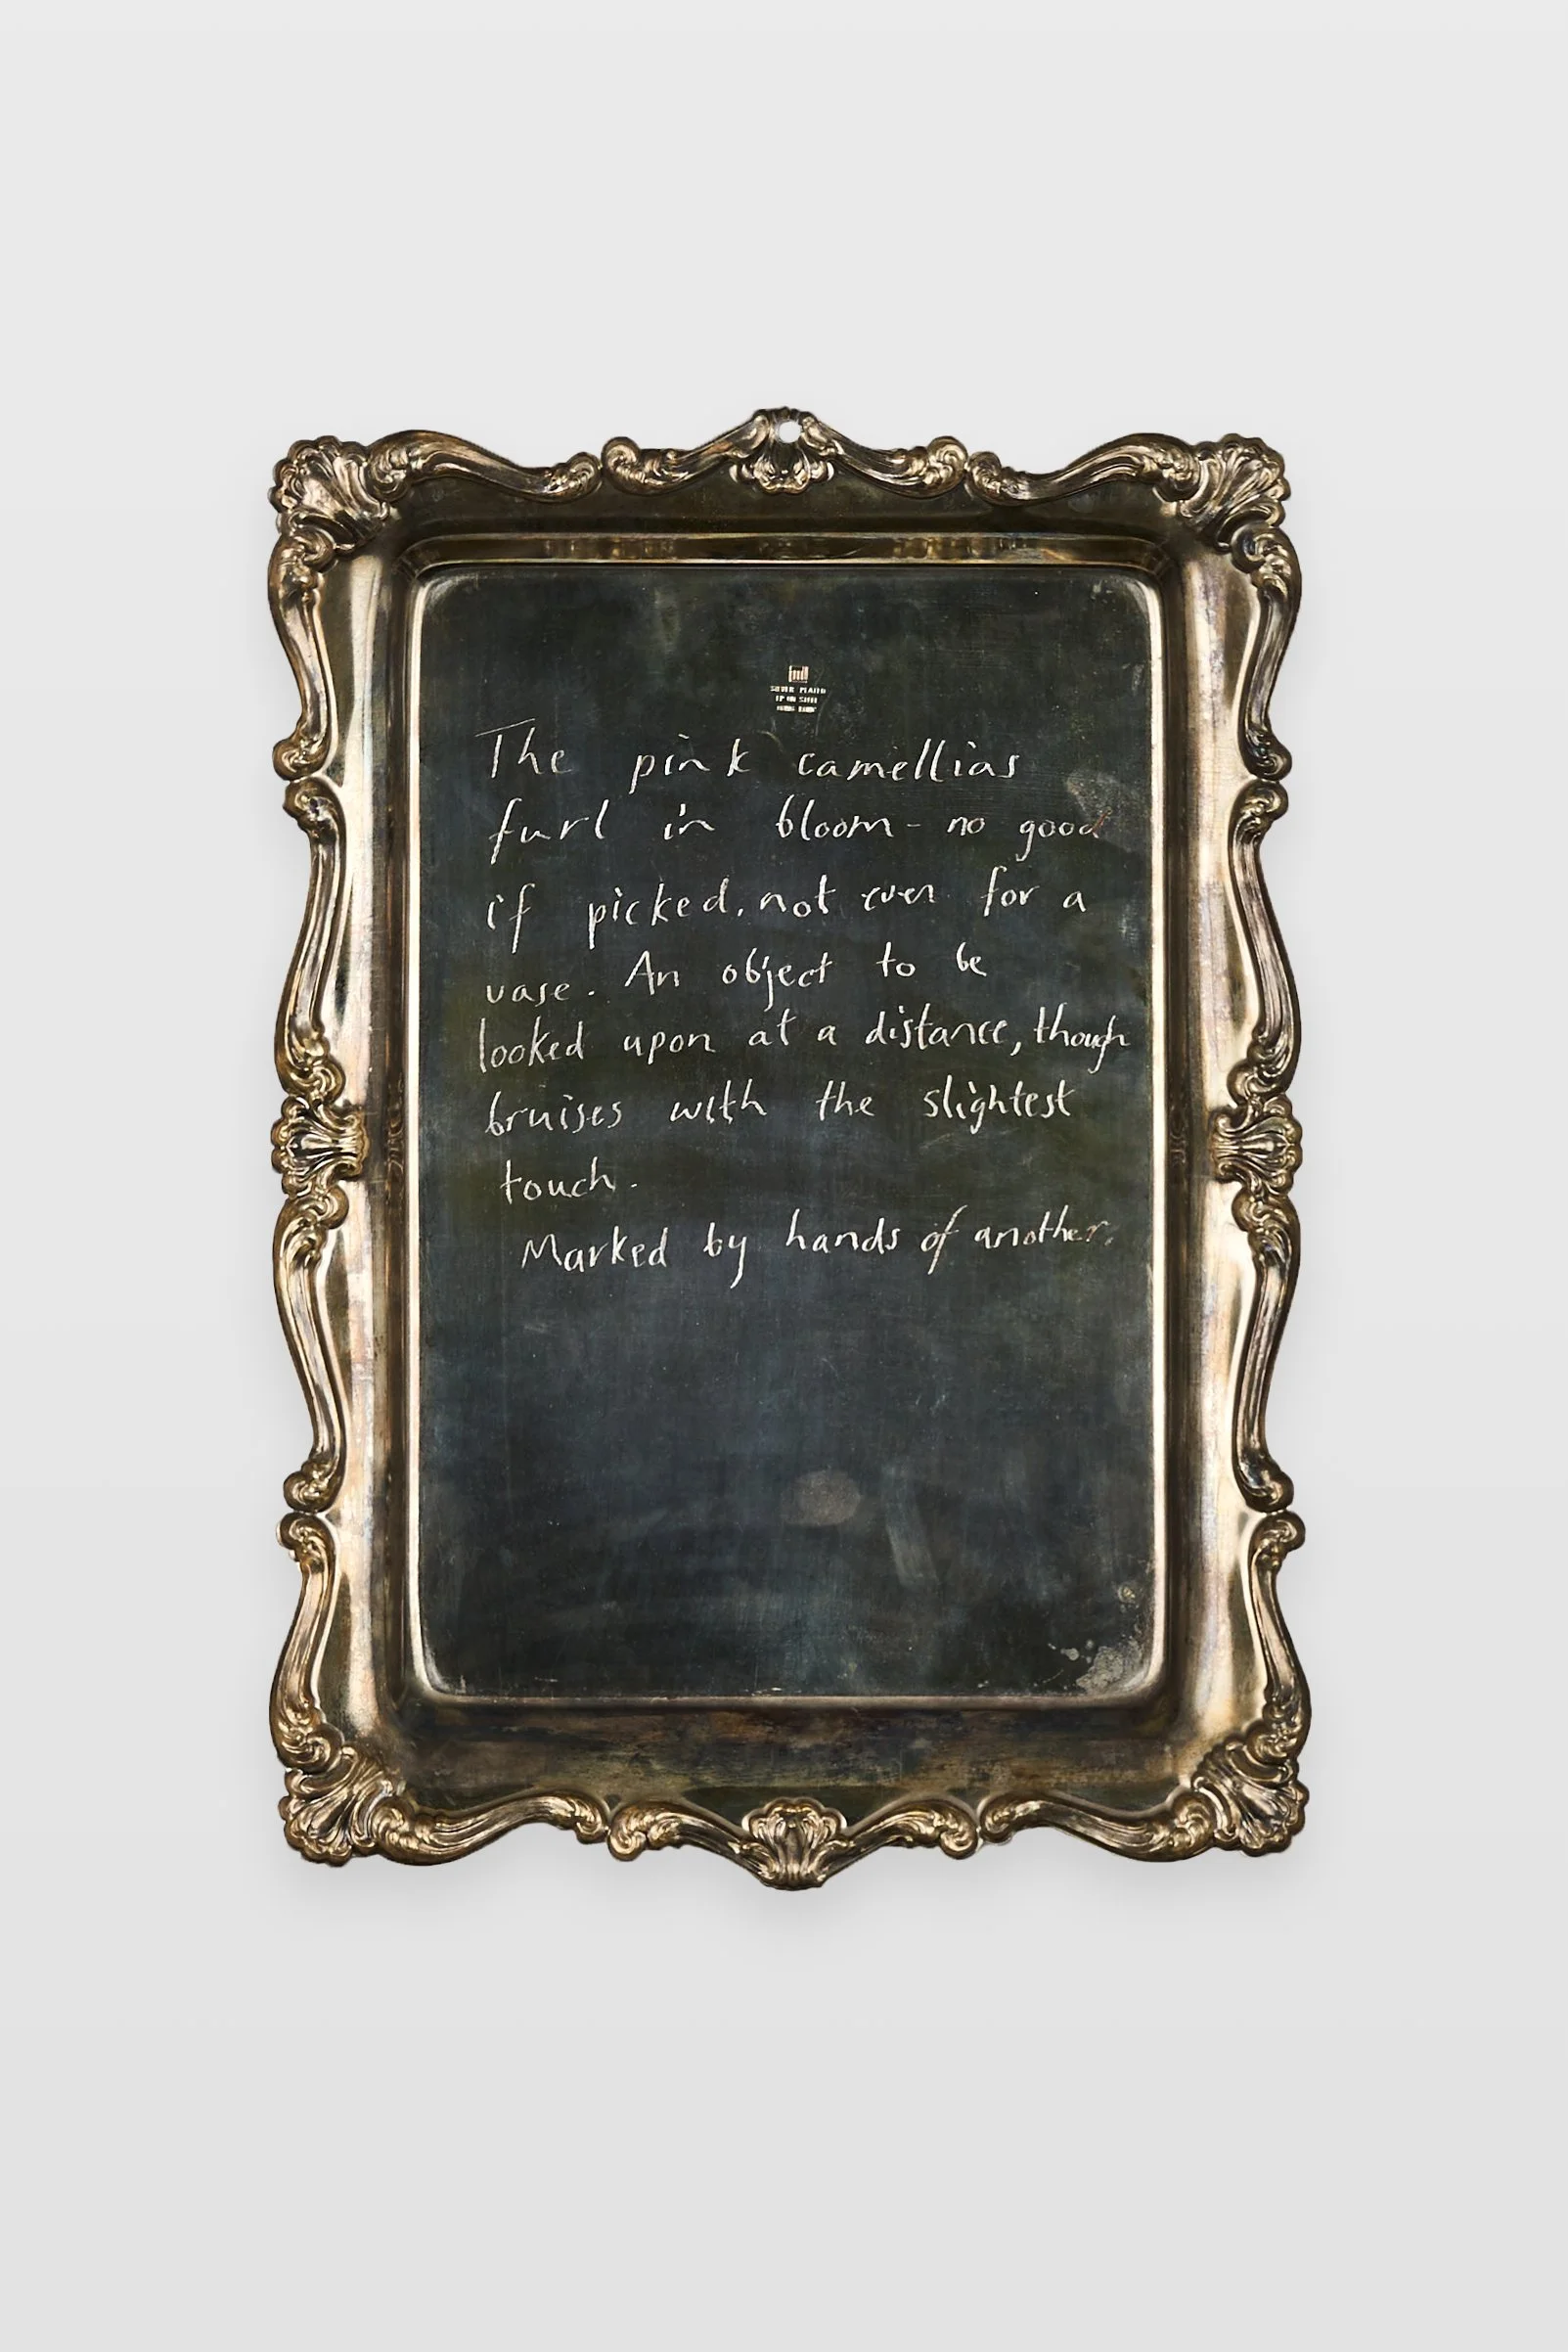 SILVER PLATED
EP ON STEEL
HONG KONG
The pink camellias
furl in bloom - no good
if picked, not even for a
vase. An object to be
looked upon at a distance, though
bruises with the slightest
touch.
Marked by hands of another.